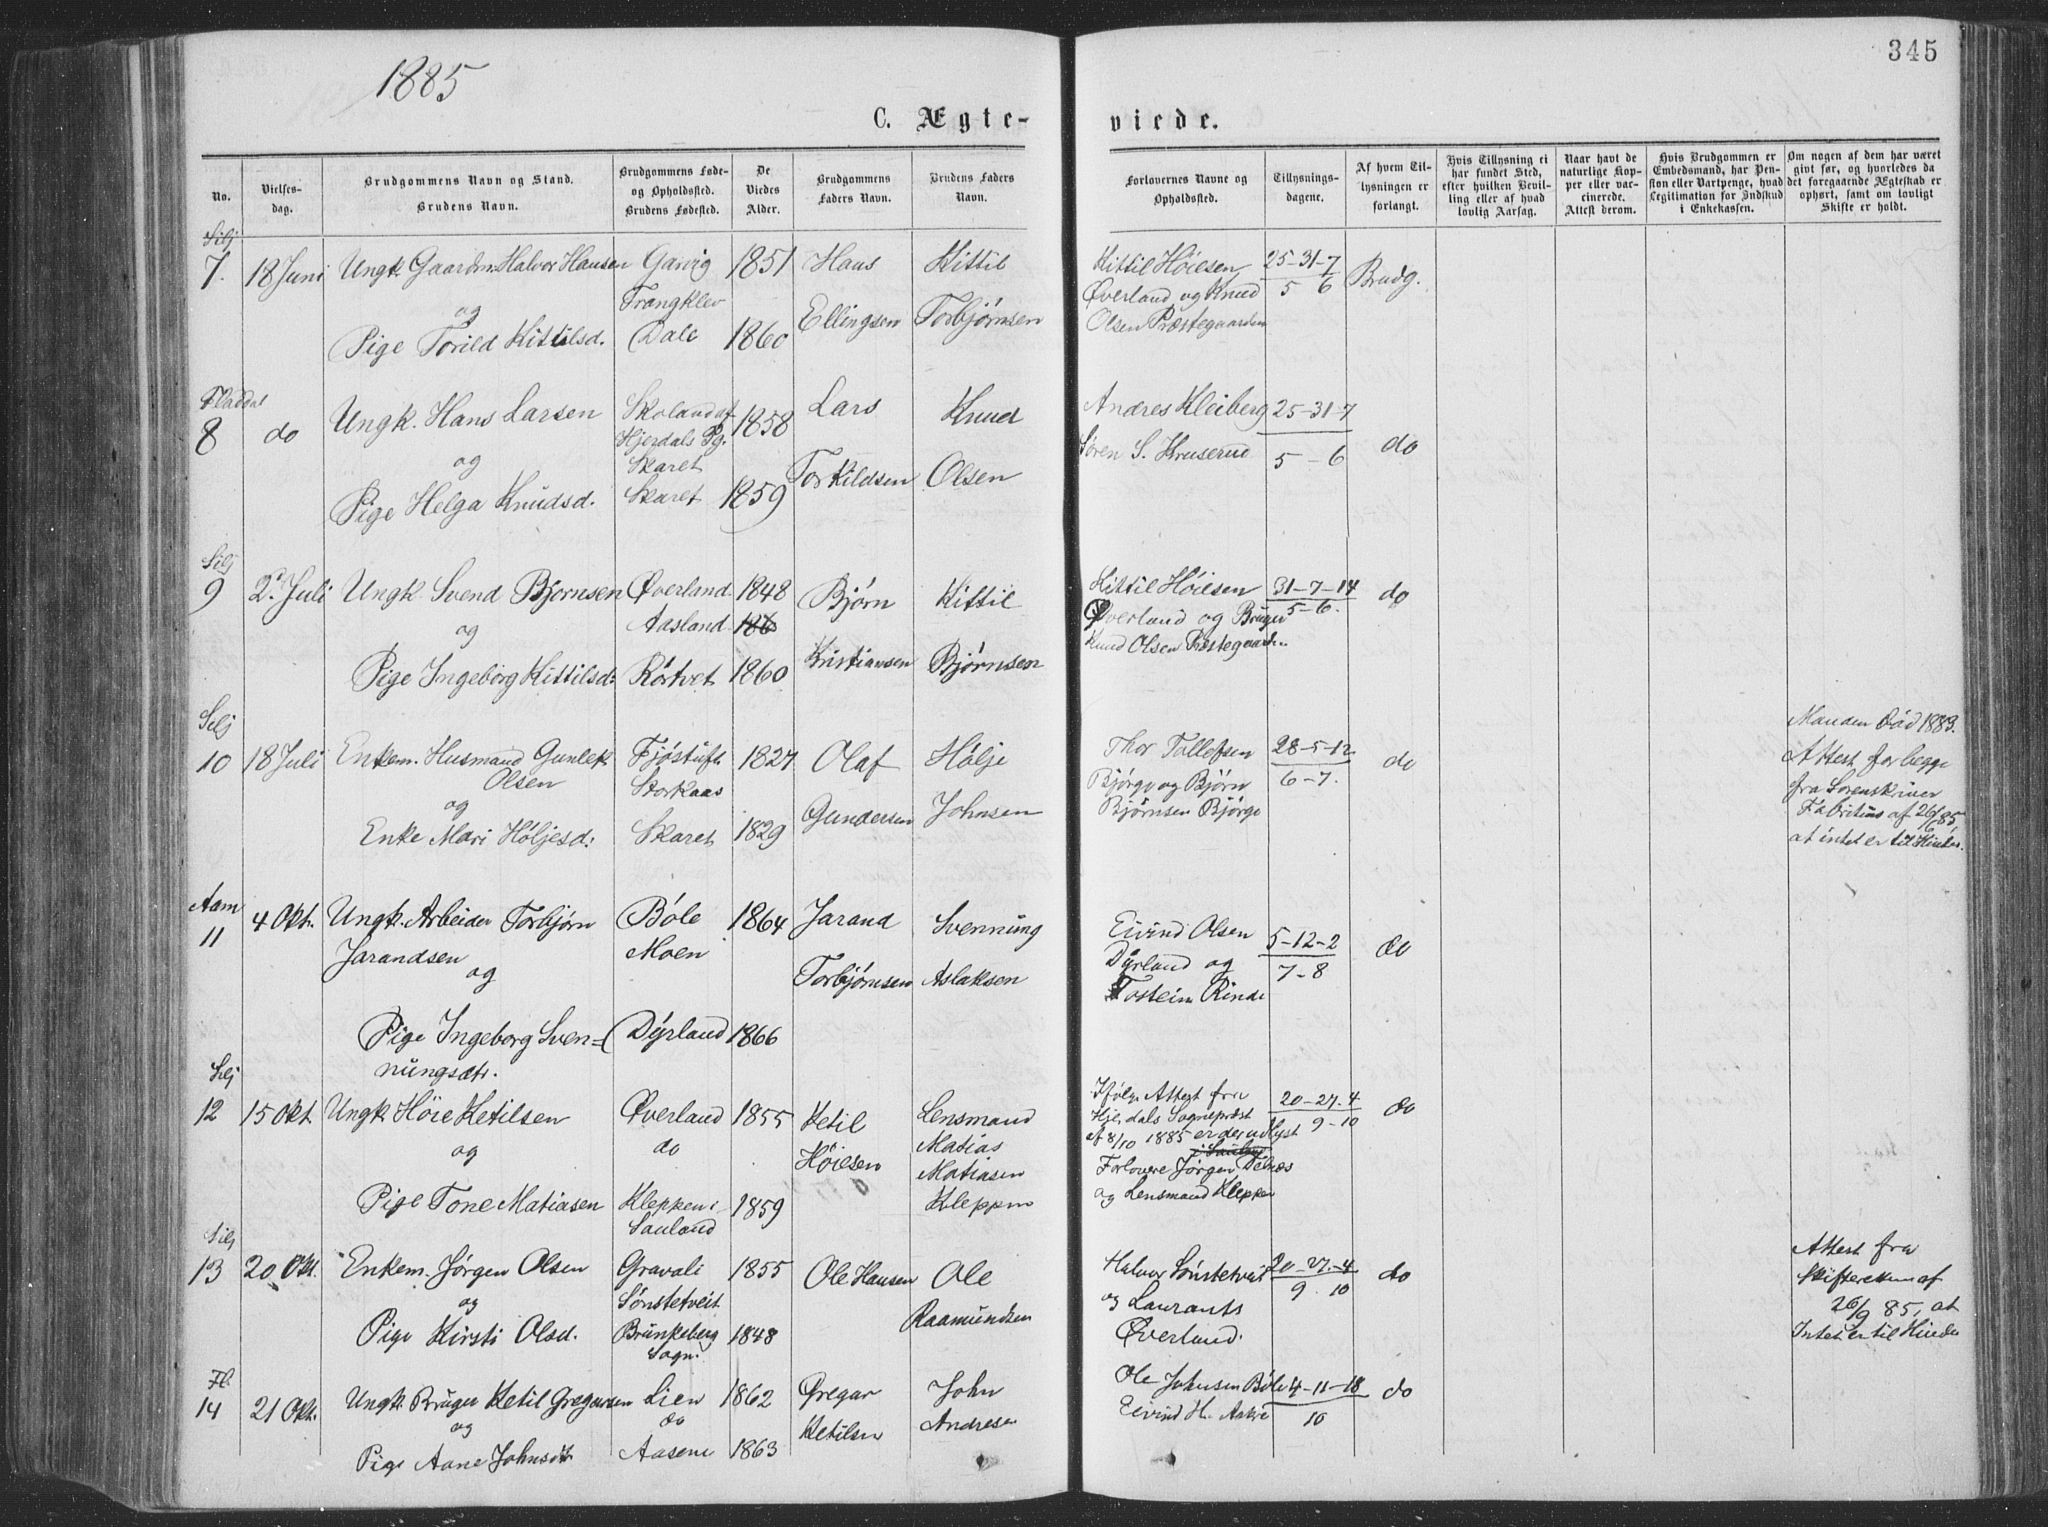 1885
345
C. Ægte-
viede.
No.
Vielses-
dag.
Brudgommens Navn og Stand.
Brudens Navn.
Brudgommens Føde-
og Opholdssted.
Brudens Fødested.
De
Viedes
Alder.
Brudgommens
Faders Navn.
Brudens Faders
Navn.
Forlovernes Navne og
Opholdssted.
Tillysnings-
dagene.
Af hvem Til-
lysningen er
forlangt.
Hvis Tillysning ei
har fundet Sted,
efter hvilken Bevil-
ling eller af hvad
lovlig Aarsag.
Naar havt de
naturlige Kop-
per eller var-
cinerede.
Attest derom.
Hvis Brudgommen er
Embedsmand, har Pen-
sion eller Vartpenge, hvad
Legitimation for Indskud
i Enkekassen.
Om nogen af dem har været
givt før, og hvorledes da
det foregaaende Ægteskab er
ophørt, samt om lovligt
Skifte er holdt.
Silj
7. 18 Juni Ungk. Gaardm. Halvor Hansen Garvig 1851 Hans Kittil
Trangklev
og
Pige Torild Kittilsd. Dale 1860 Ellingsen Torbjørnsen
Kittil Höiesen 25-31-7 Brudg.
Øverland og Knud 5 6
Olsen Præstegaarden
Fladdal
8 do Ungk. Hans Larsen Skoland af 1858 Lars Knud
Hjerdals Pg.
og Skaret
Pige Helga Knudsd. Skaret 1859 Torkildsen Olsen
Andres Kleiberg 25-31-7 do
Søren S. Kruserud 5-6
Silj
9 2. Juli Ungk. Svend Bjørnsen Øverland 1848 Bjørn Kittil
og Aasland 186
Pige Ingeborg Kittilsd: Rörtvet 1860 Kristiansen Bjørnsen
Kittil Höiesen 31-7-14 do
Øverland og Bruger 5-6.
Knud Olsen Præstegaarden
Selj
10 18 Juli Enkem. Husmand Gunlek Fjöstuft 1827 Olaf Hölje
Olsen Storkaas
og
Enke Mari Höljesd: Skaret 1829 Gundersen Johnsen
Thor Tollefsen 28-5-12 do
Bjørge og Bjørn 6-7.
Bjørnsen Bjørge
Manden Död 1883.
Attest for begge
fra Sorenskriver
Fabritius af 26/6 85,
at intet er til Hinder.
Aam
11 4 Okt. Ungk. Arbeider Torbjørn Böle 1864 Jarand Svennung
Jarandsen Moen
og Torbjørnsen Aslaksen
Pige Ingeborg Sven= Dyrland 1866
nungsdtr.
Eivind Olsen 5-12-2 do
Dyrland og 7-8
Tosteim Rinde
Selj
12 15 Okt Ungk Höie Ketilsen Øverland 1855 Ketil Lensmand
og do Höiesen Matias
Matiasen
Pige Tone Matiasen Kleppen i 1859 Kleppen
Sauland
Ifölge Attest fra 20-27-4 do
Hjerdals Sognepræst 9-10
af 8/10 1885 er der udlyst
i Sauland
Forlovere Jørgen Telnæs
og Lensmand Kleppen
Silj
13 20 Okt. Enkem. Jørgen Olsen Gravali 1855 Ole Hansen Ole
og Sönstetveit
Pige Kirsti Olsd. Brunkeberg 1848 Raamundsen
Sogn.
Halvor Sönstetveit 20-27-4 do
og Laurants 9.10
Øverland.
Attest fra
Skifteretten af
26/9 85, at
Intet er til Hinder
Fl.
14 21 Okt. Ungk. Bruger Ketil Gregarsen Lien 1862 Gregar John
og do
Pige Aane Johnsdtr Aasene 1863 Ketilsen Andresen
Ole Johnsen Böle 4-11-18 do
Eivind H. 10